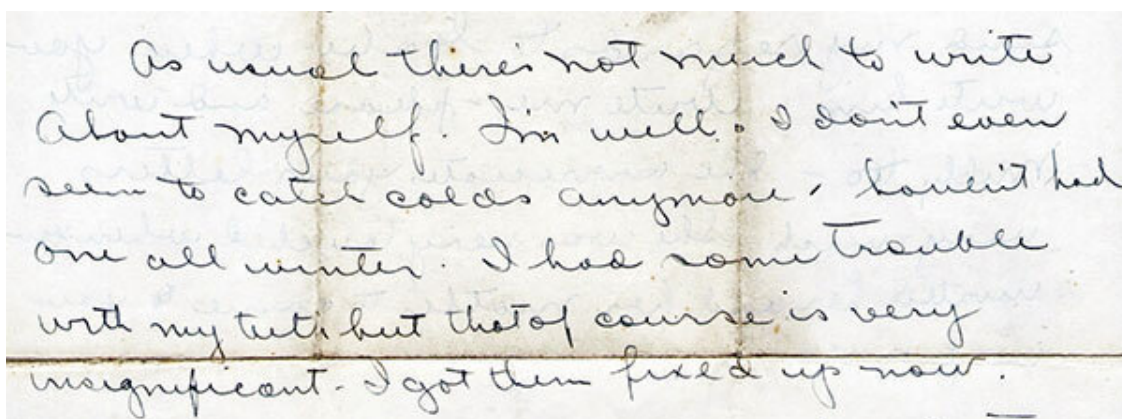 As usual there's not much to write
About myself. I'm well. I don't even
seem to catch colds anymore, haven't had
one all winter. I had some trouble
with my teeth but that of course is very
insignificant - I got them fixed up now.